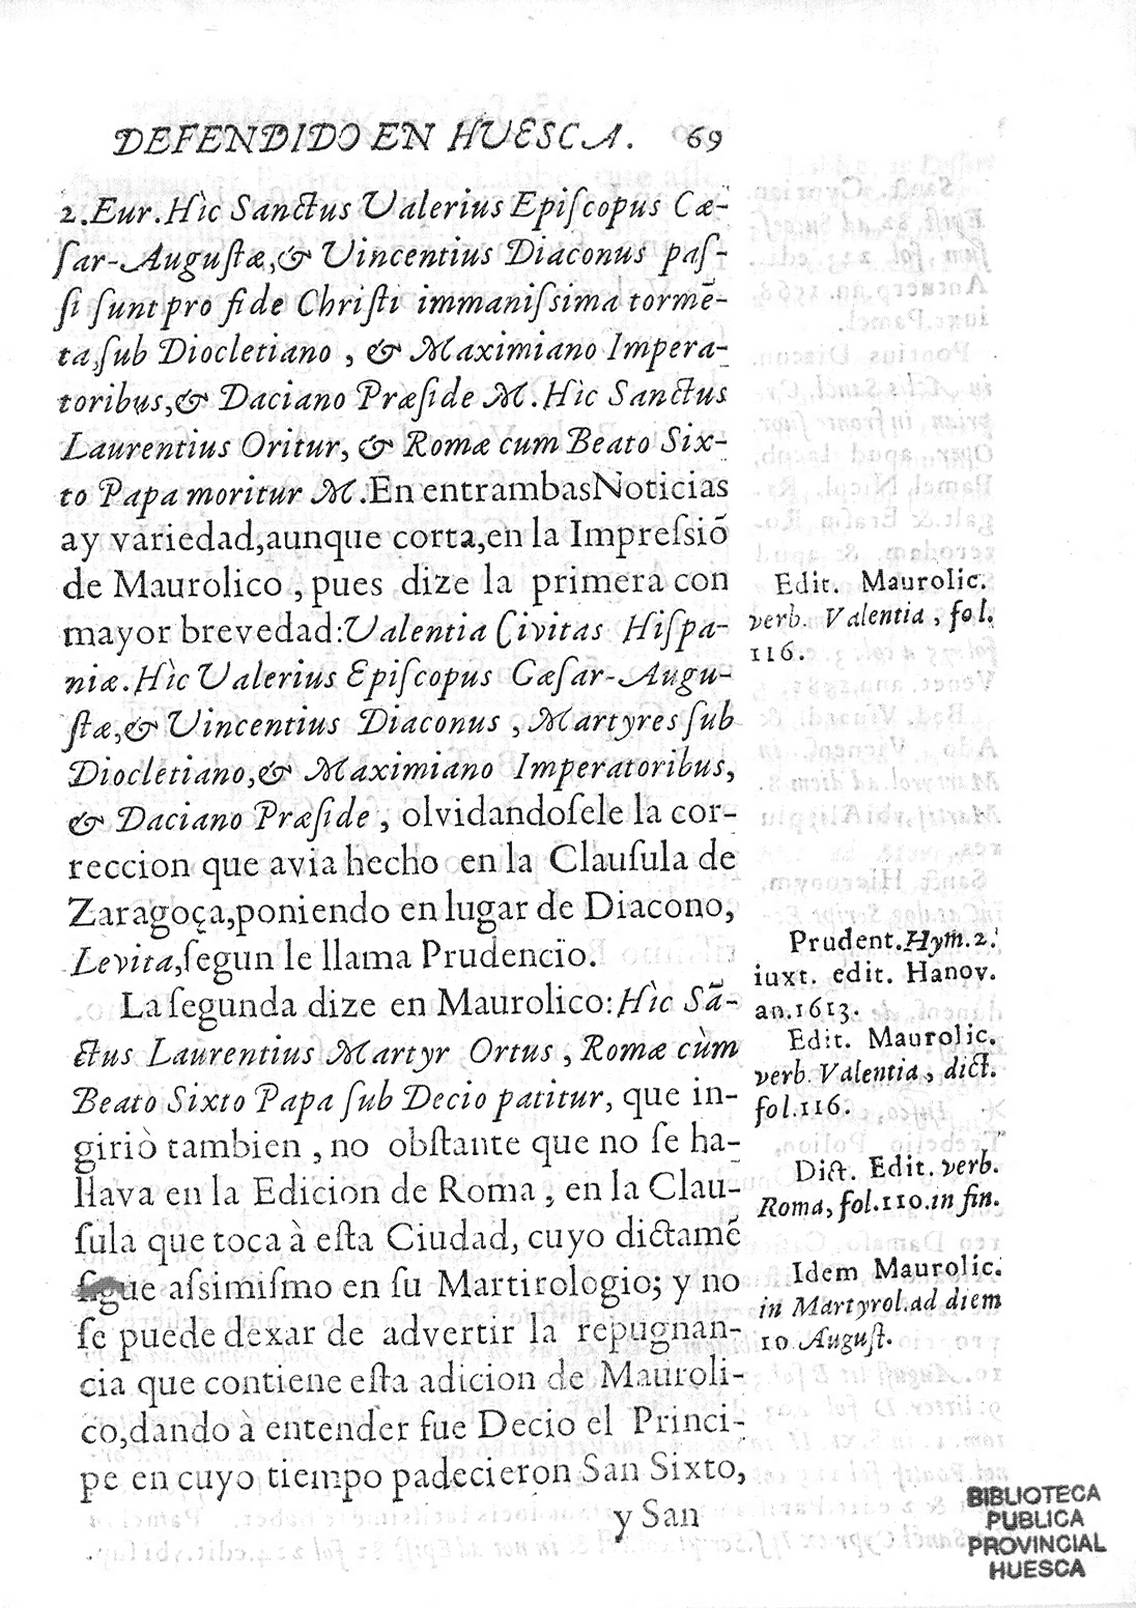 DEFENDIDO EN HUESCA. 69
2.Eur.Hìc Sanctus Valerius Epiſcopus Cæ-
ſar-Auguſtæ,& Vincentius Diaconus paſ-
ſi ſunt pro fide Chriſti immaniſsima tormẽ-
ta,ſub Diocletiano , & Maximiano Impera-
toribus,& Daciano Præſide M.Hìc Sanctus
Laurentius Oritur, & Romæ cum Beato Six-
to Papa moritur M.En entrambasNoticias
ay variedad,aunque corta,en la Impreſsiõ
de Maurolico , pues dize la primera con
mayor brevedad:Valentia Civitas Hiſpa-
niæ.Hìc Valerius Epiſcopus Cæſar-Augu-
ſtæ,& Vincentius Diaconus , Martyres ſub
Diocletiano,& Maximiano Imperatoribus,
& Daciano Præſide , olvidandoſele la cor-
reccion que avia hecho en la Clauſula de
Zaragoça,poniendo en lugar de Diacono,
Levita,ſegun le llama Prudencio.
La ſegunda dize en Maurolico:Hìc Sã-
ctus Laurentius Martyr Ortus , Romæ cùm
Beato Sixto Papa ſub Decio patitur, que in-
giriò tambien , no obſtante que no ſe ha-
llava en la Edicion de Roma , en la Clau-
ſula que toca à eſta Ciudad, cuyo dictamẽ
ſigue aſsimiſmo en ſu Martirologio; y no
ſe puede dexar de advertir la repugnan-
cia que contiene eſta adicion de Mauroli-
co,dando à entender fue Decio el Princi-
pe en cuyo tiempo padecieron San Sixto,
y San
Edit. Maurolic.
verb. Valentia , fol.
116.
Prudent.Hym.2.
iuxt. edit. Hanov.
an.1613.
Edit. Maurolic.
verb. Valentia , dict.
fol.116.
Dict. Edit. verb.
Roma, fol.110.in fin.
Idem Maurolic.
in Martyrol.ad diem
10 Auguſt.
BIBLIOTECA
PUBLICA
PROVINCIAL
HUESCA